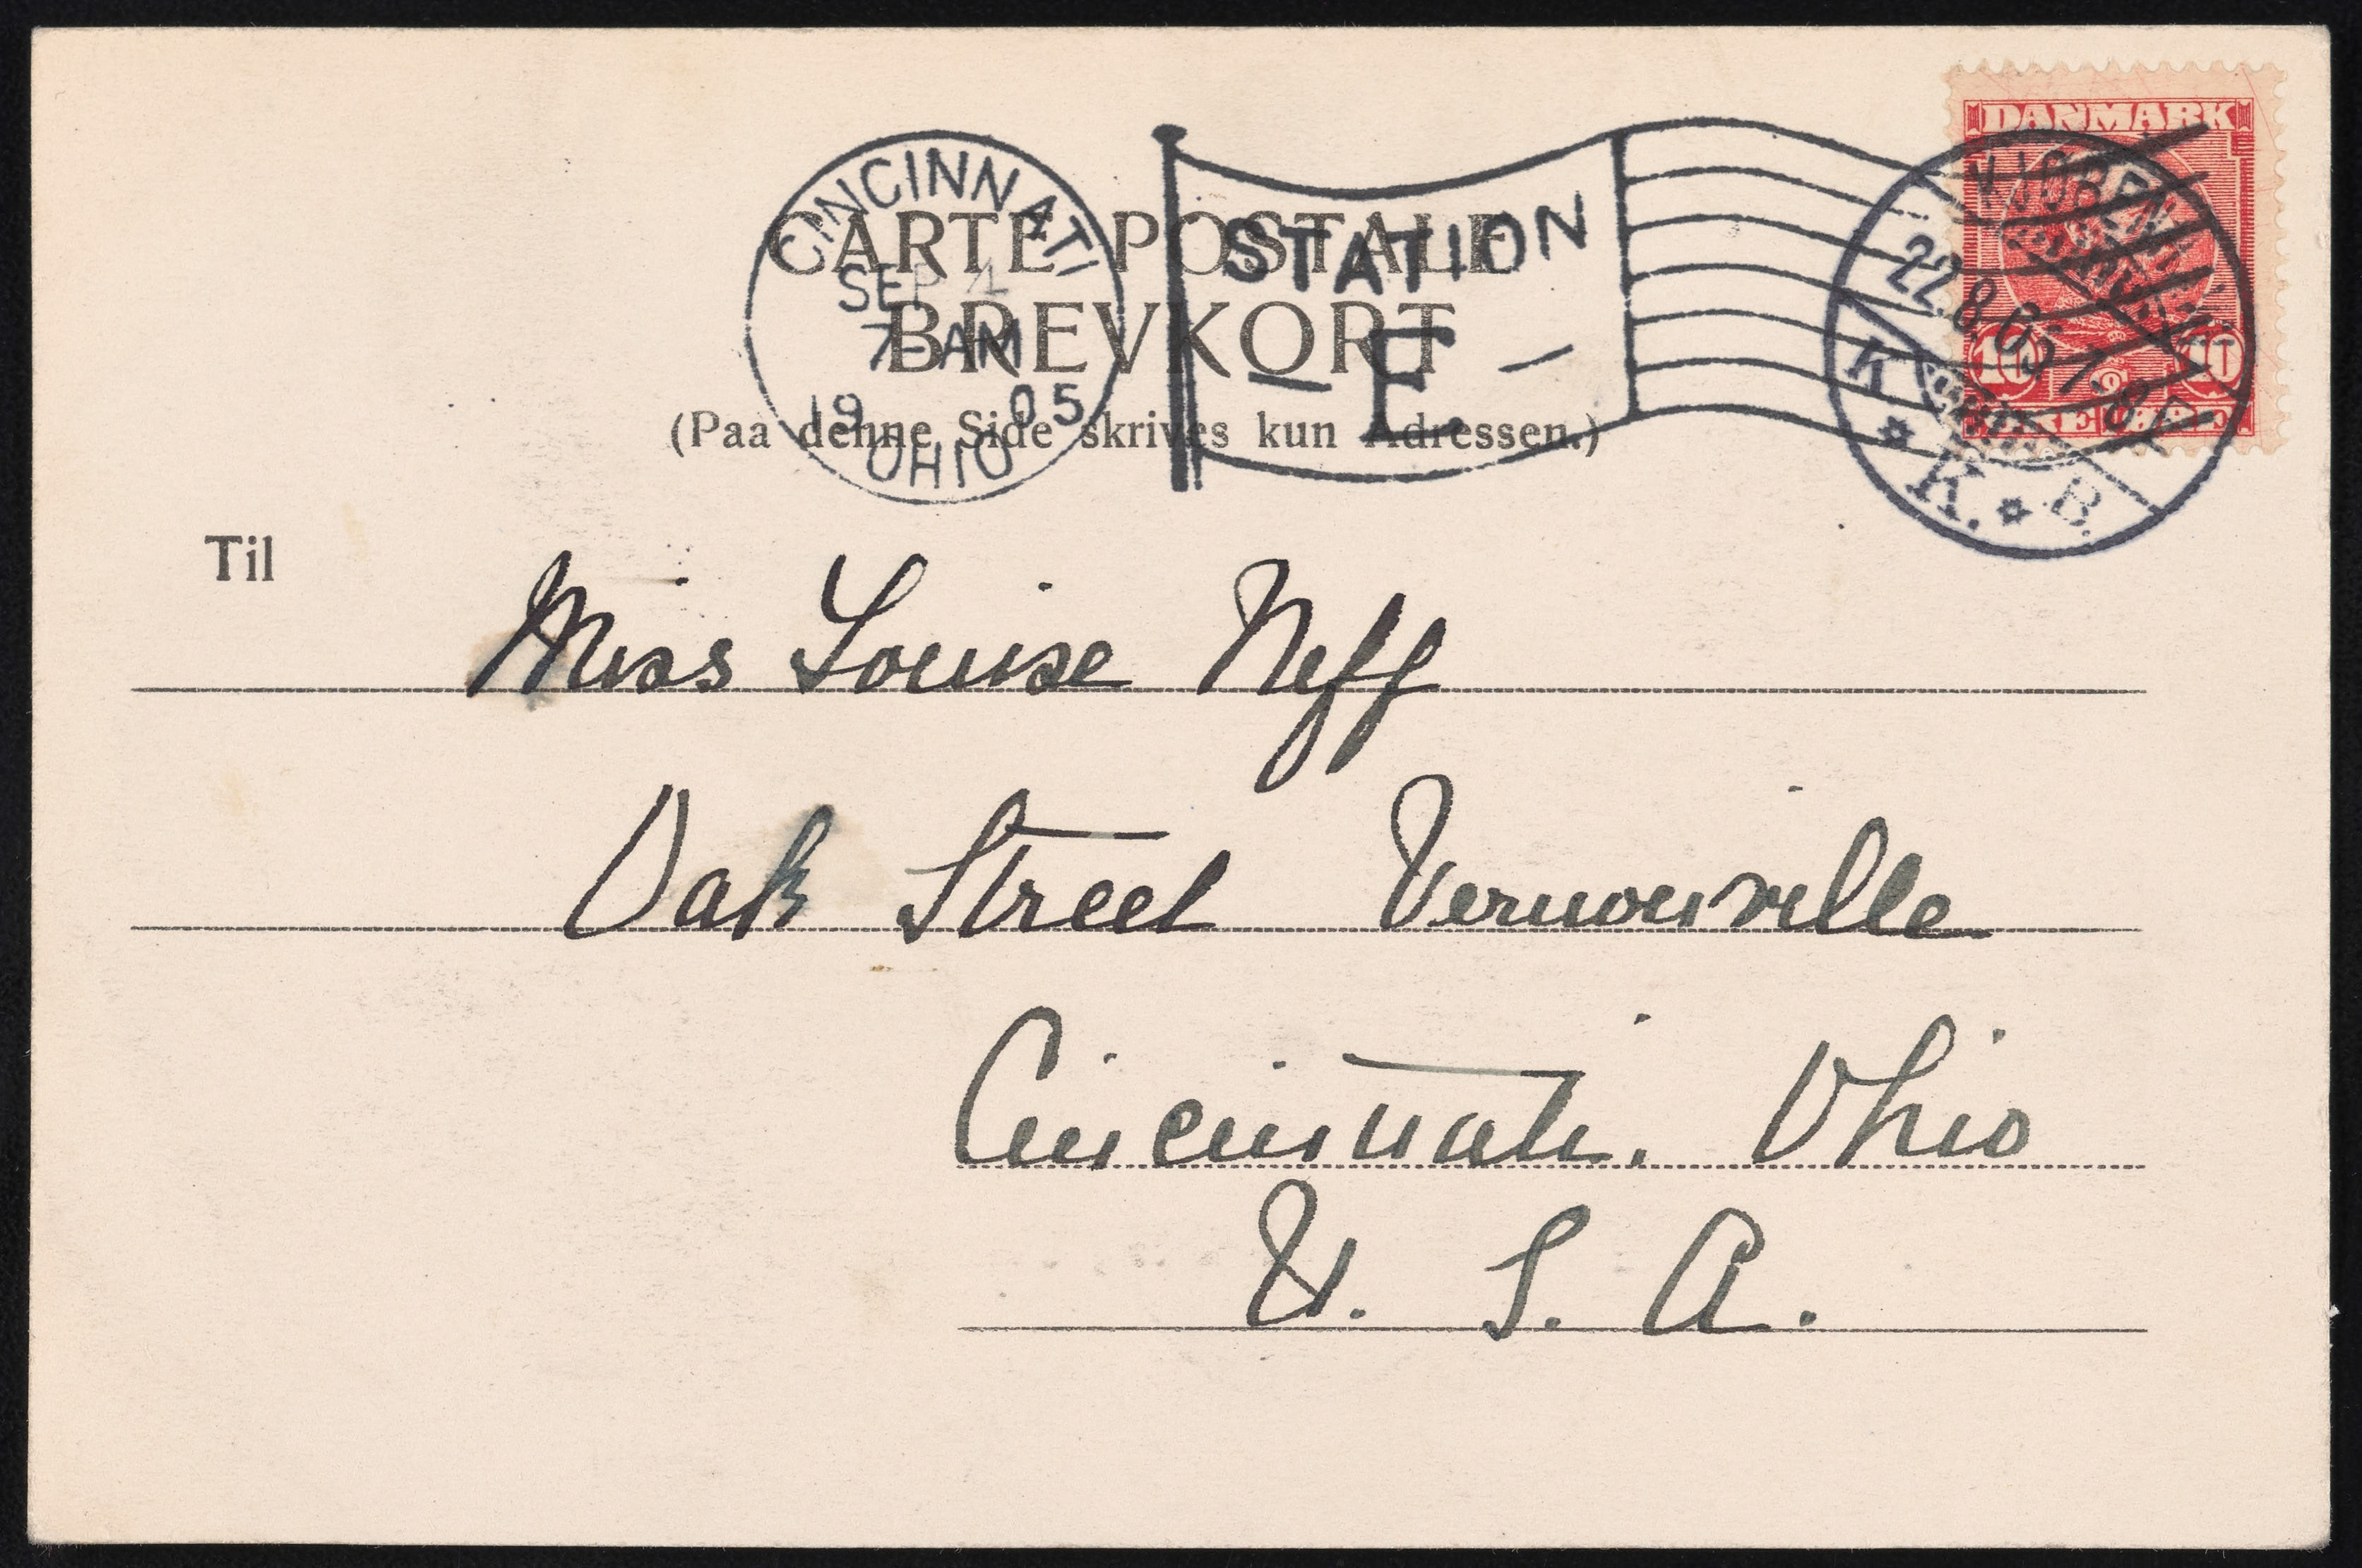 DANMARK
10 10
ØRE ØRE
KJØBENHAVN
22.8.05 7-8 E
K
K. B.
CINCINNATI
SEP 4
7-AM
19 05
OHIO
STATION
- E -
CARTE POSTALE
BREVKORT
(Paa denne Side skrives kun Adressen.)
Til
Miss Louise Neff
Oak Street Vernonville
Cincinnati. Ohio
U. S. A.